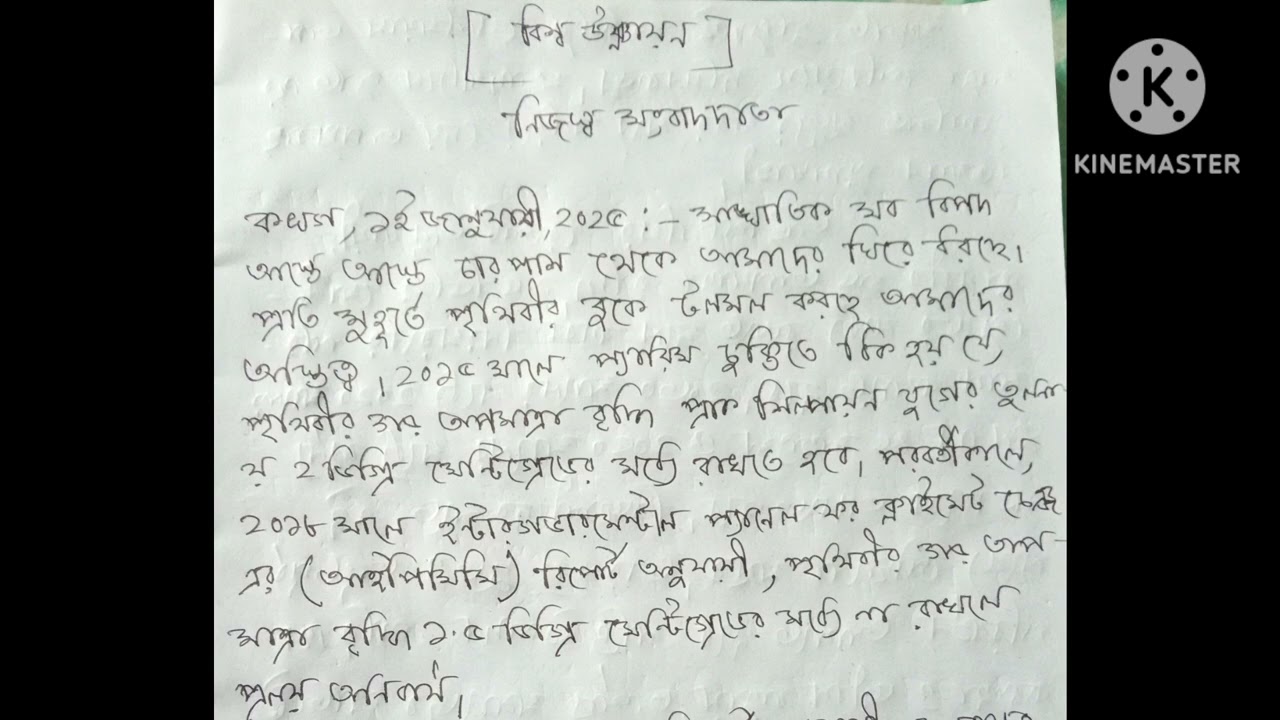 [ বিশ্ব উষ্ণায়ন ]
নিজস্ব সংবাদদাতা
৯ই জানুয়ারী, ২০২৫ :- সাংঘাতিক সব বিপদ
আস্তে আস্তে চারপাশ থেকে আমাদের ঘিরে ধরছে।
প্রতি মুহূর্তে পৃথিবীর বুকে টলমল করছে আমাদের
অস্তিত্ব। ২০১৫ সালে প্যারিস চুক্তিতে ঠিক হয় যে
পৃথিবীর গড় তাপমাত্রা বৃদ্ধি প্রাক শিল্পায়ন যুগের তুলনা
য় ২ ডিগ্রি সেন্টিগ্রেডের মধ্যে রাখতে হবে। পরবর্তীকালে,
২০১৮ সালে ইন্টারগভারমেন্টাল প্যানেল ফর ক্লাইমেট চেঞ্জ
এর (আইপিসিসি) রিপোর্ট অনুযায়ী, পৃথিবীর গড় তাপ-
মাত্রা বৃদ্ধি ১.৫ ডিগ্রি সেন্টিগ্রেডের মধ্যে না রাখলে
প্রলয় অনিবার্য।
KINEMASTER